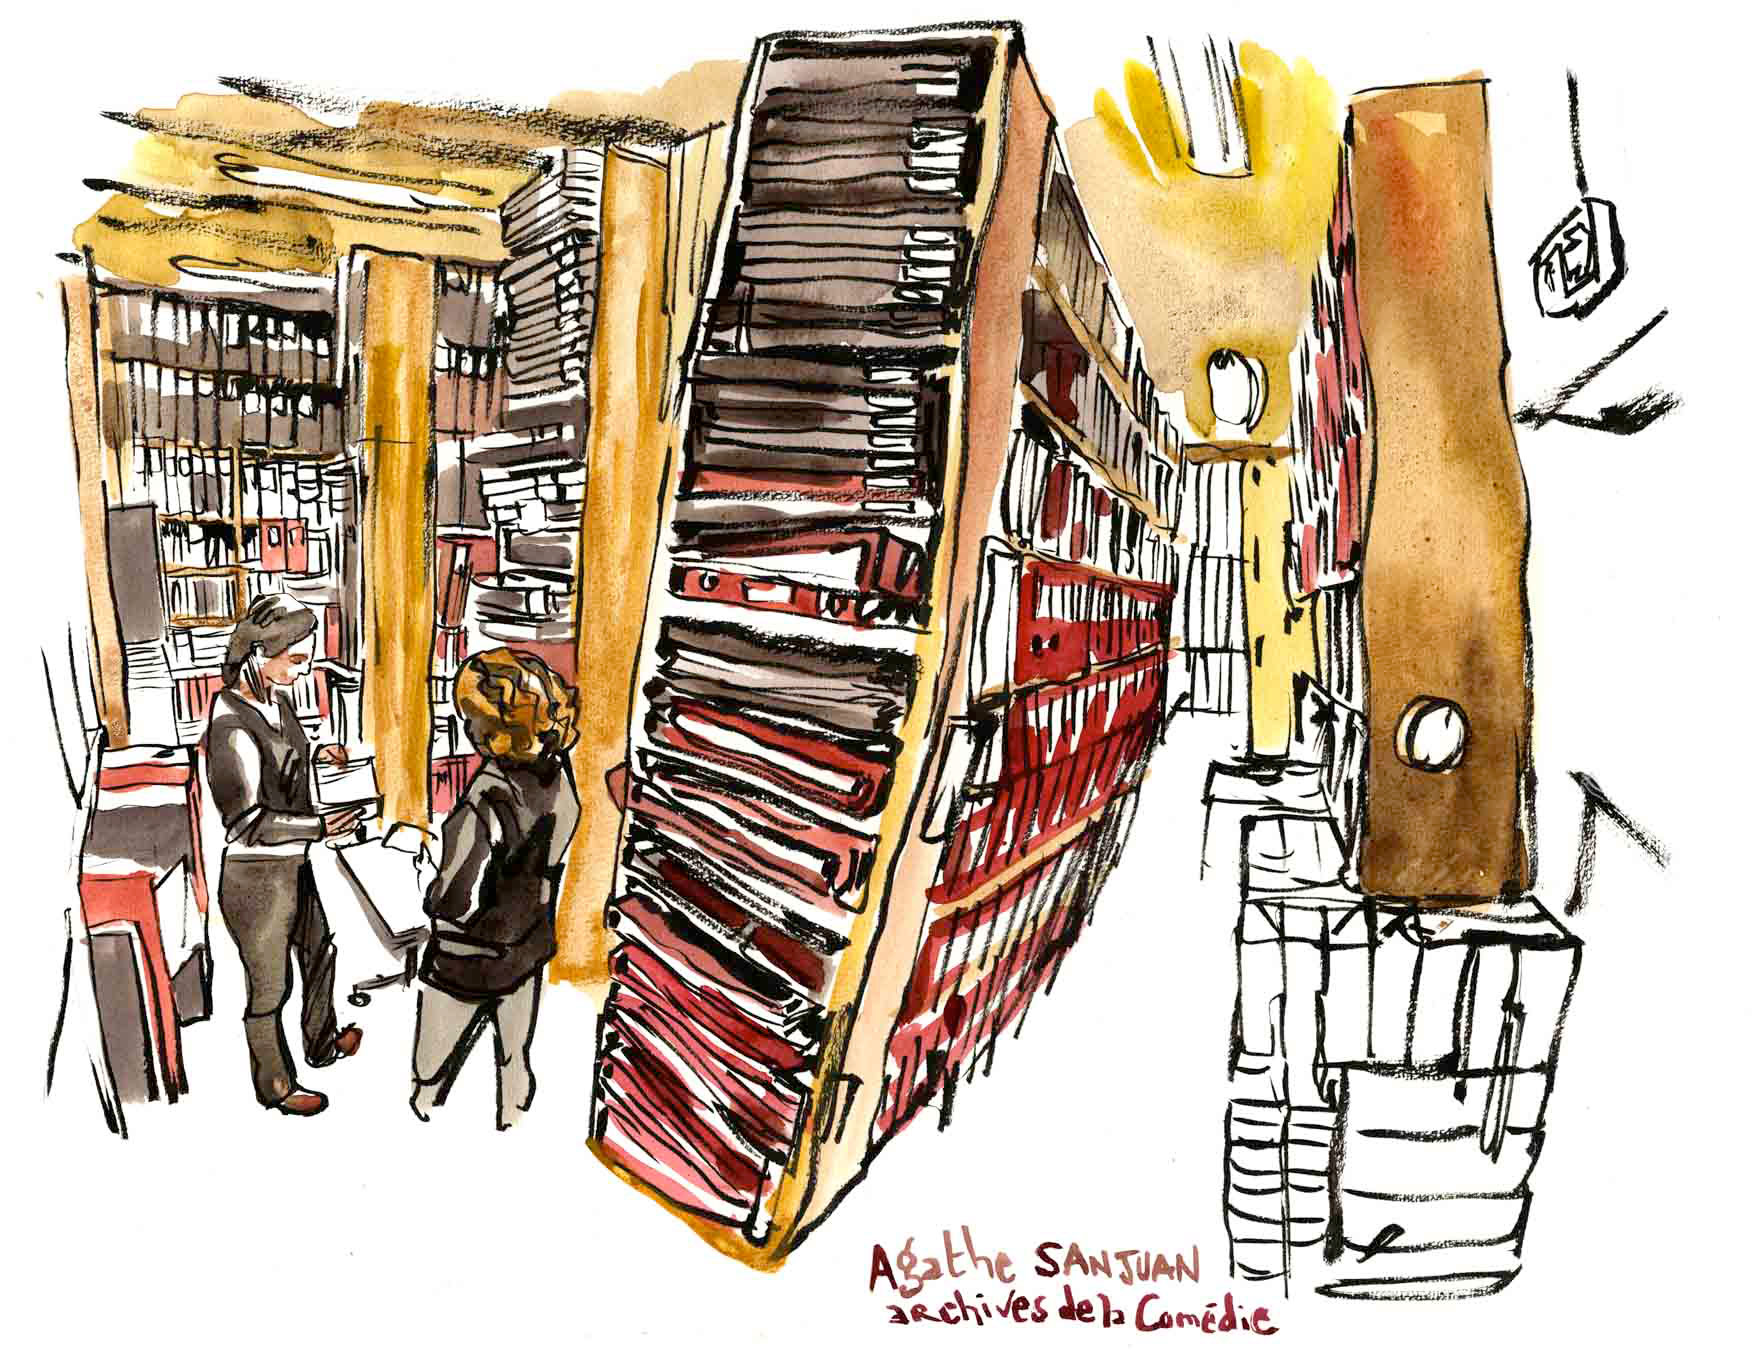 Agathe SANJUAN
archives de la Comédie